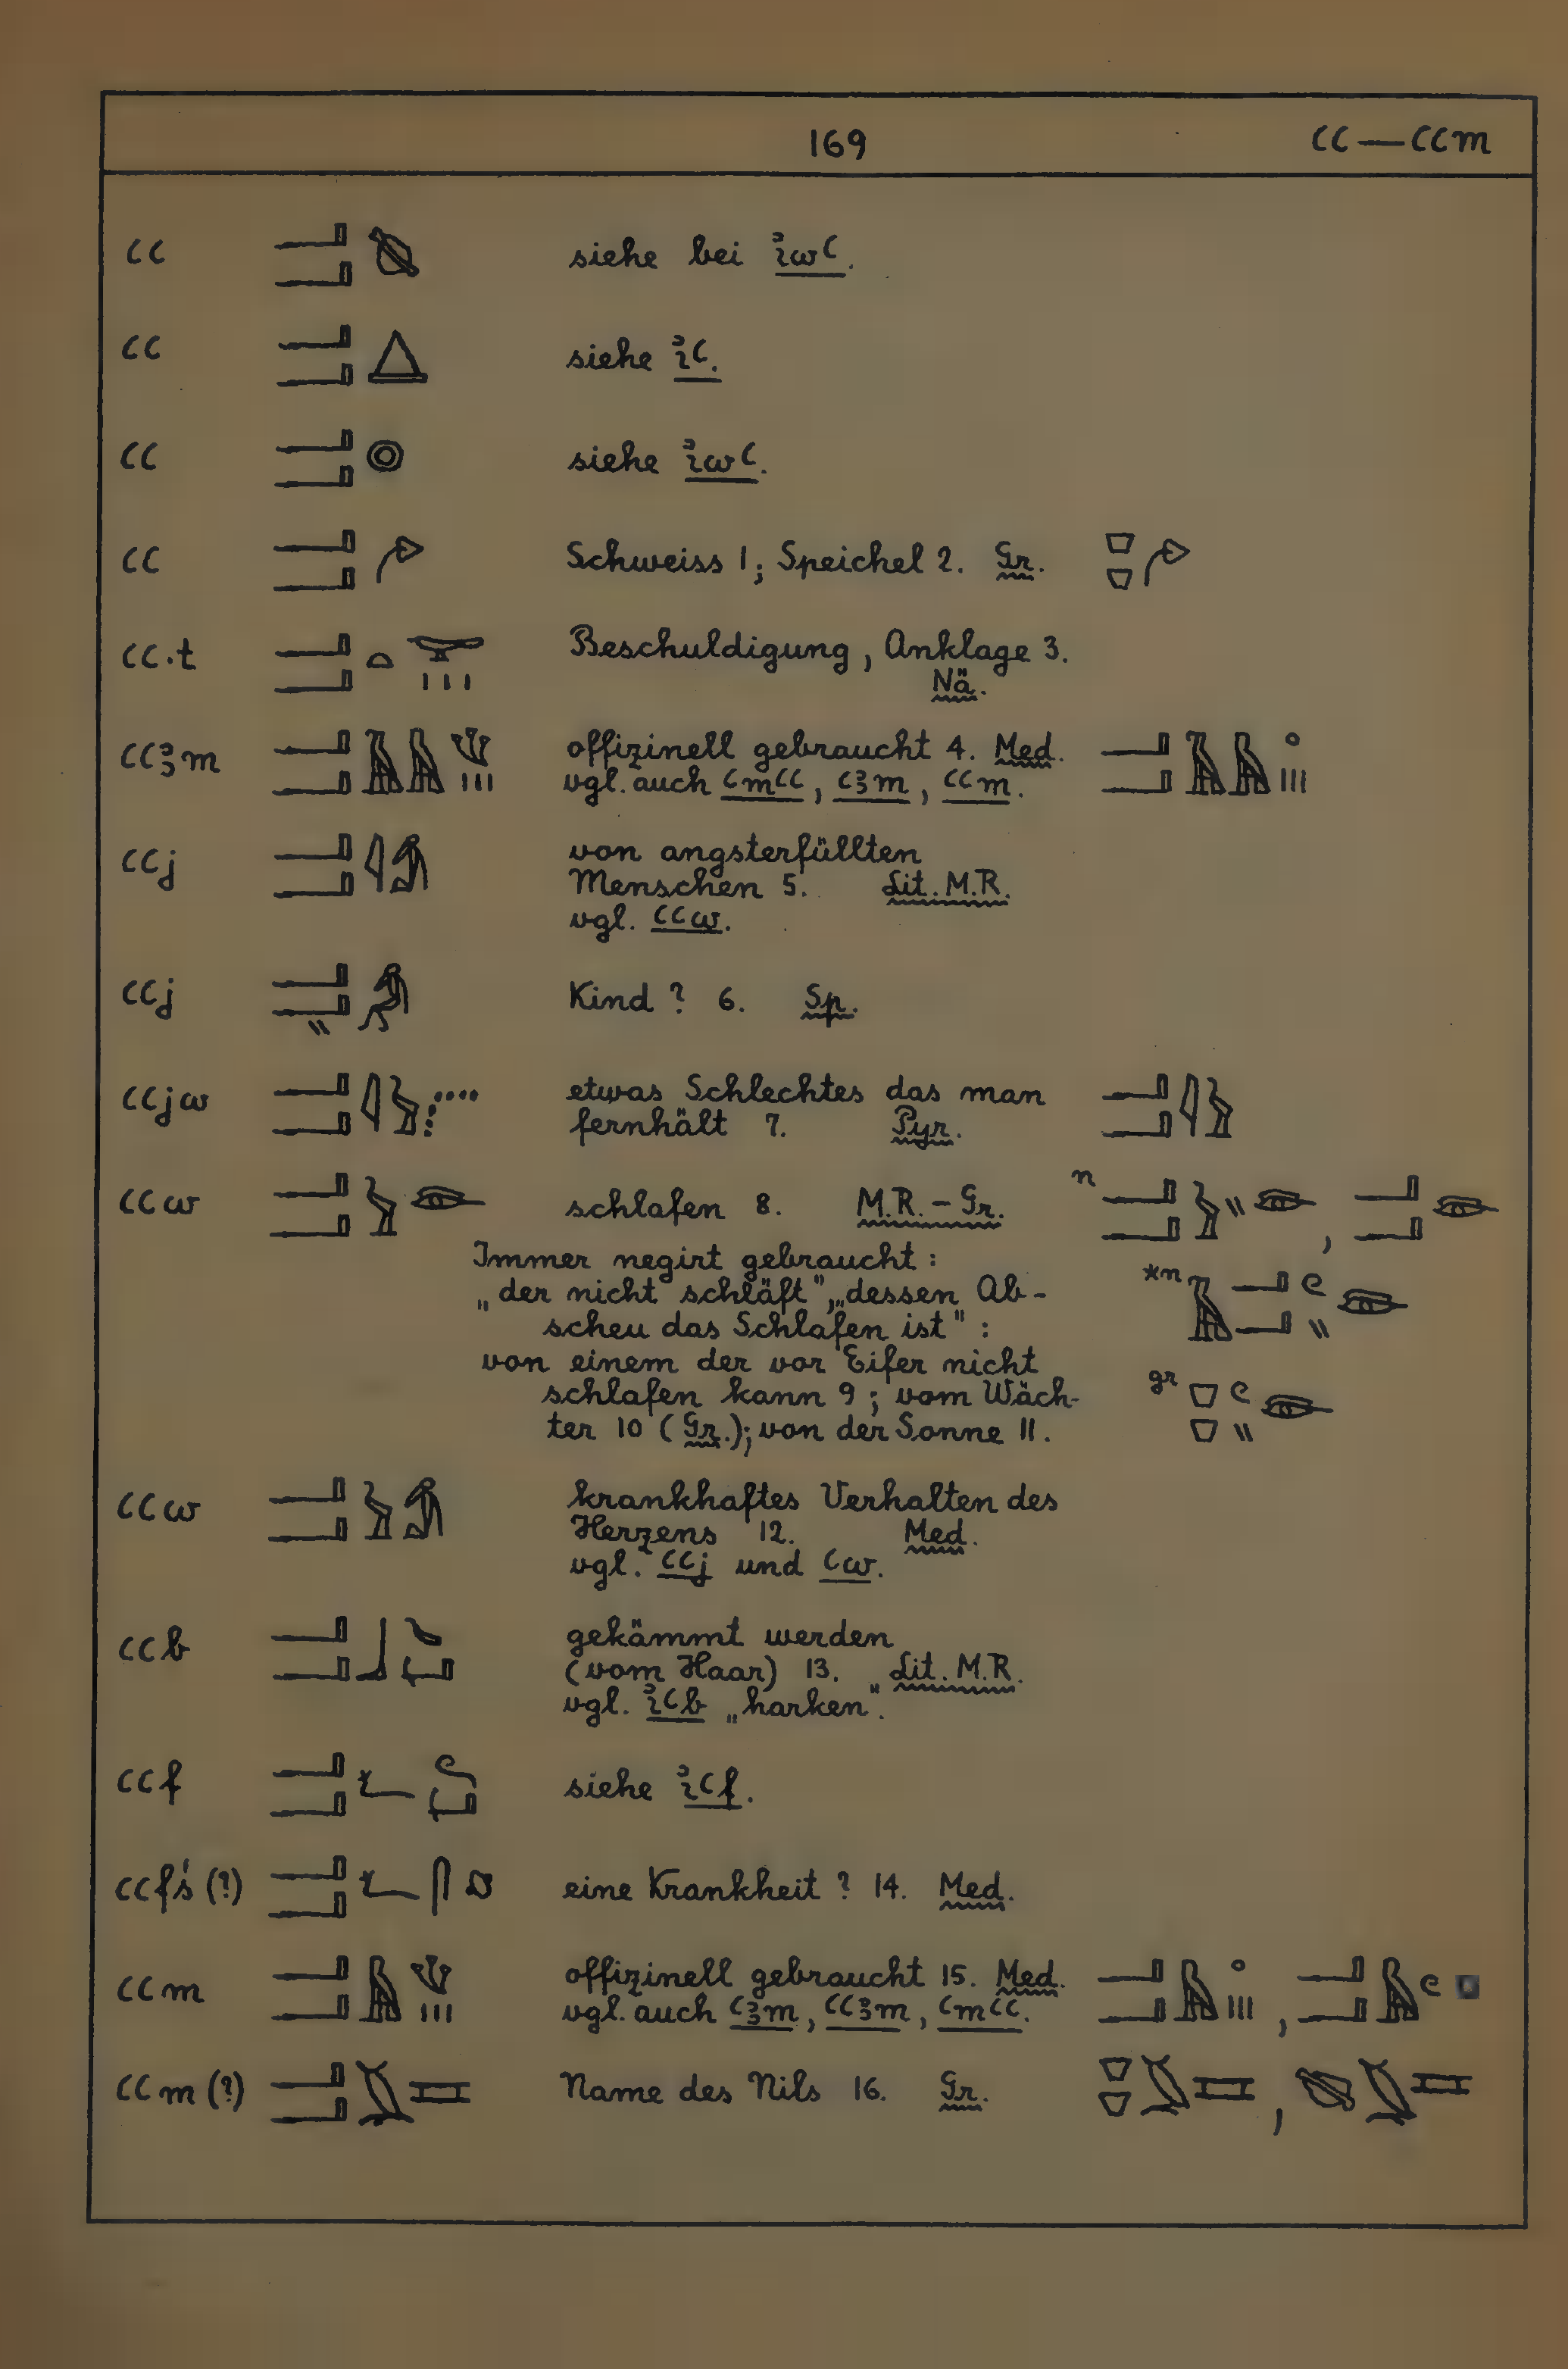 169 ꜥꜥ — ꜥꜥm
ꜥꜥ siehe bei iwꜥ.
ꜥꜥ siehe iꜥ.
ꜥꜥ siehe iwꜥ.
ꜥꜥ Schweiss 1; Speichel 2. Gr.
ꜥꜥ.t Beschuldigung, Anklage 3.
Nä.
ꜥꜥꜣm offizinell gebraucht 4. Med.
vgl. auch ꜥmꜥꜥ, ꜥꜣm, ꜥꜥm.
ꜥꜥj von angsterfüllten
Menschen 5. Lit. M.R.
vgl. ꜥꜥw.
ꜥꜥj Kind ? 6. Sp.
ꜥꜥjw etwas Schlechtes das man
fernhält 7. Pyr.
ꜥꜥw schlafen 8. M.R. – Gr. n ,
Immer negirt gebraucht :
„der nicht schläft", „dessen Ab- *n
scheu das Schlafen ist" :
von einem der vor Eifer nicht
schlafen kann 9 ; vom Wäch- gr
ter 10 (Gr.); von der Sonne 11.
ꜥꜥw krankhaftes Verhalten des
Herzens 12. Med.
vgl. ꜥꜥj und ꜥw.
ꜥꜥb gekämmt werden
(vom Haar) 13. Lit. M.R.
vgl. iꜥb „harken".
ꜥꜥf siehe iꜥf.
ꜥꜥfś (?) eine Krankheit ? 14. Med.
ꜥꜥm offizinell gebraucht 15. Med. ,
vgl. auch ꜥꜣm, ꜥꜥꜣm, ꜥmꜥꜥ.
ꜥꜥm (?) Name des Nils 16. Gr. ,